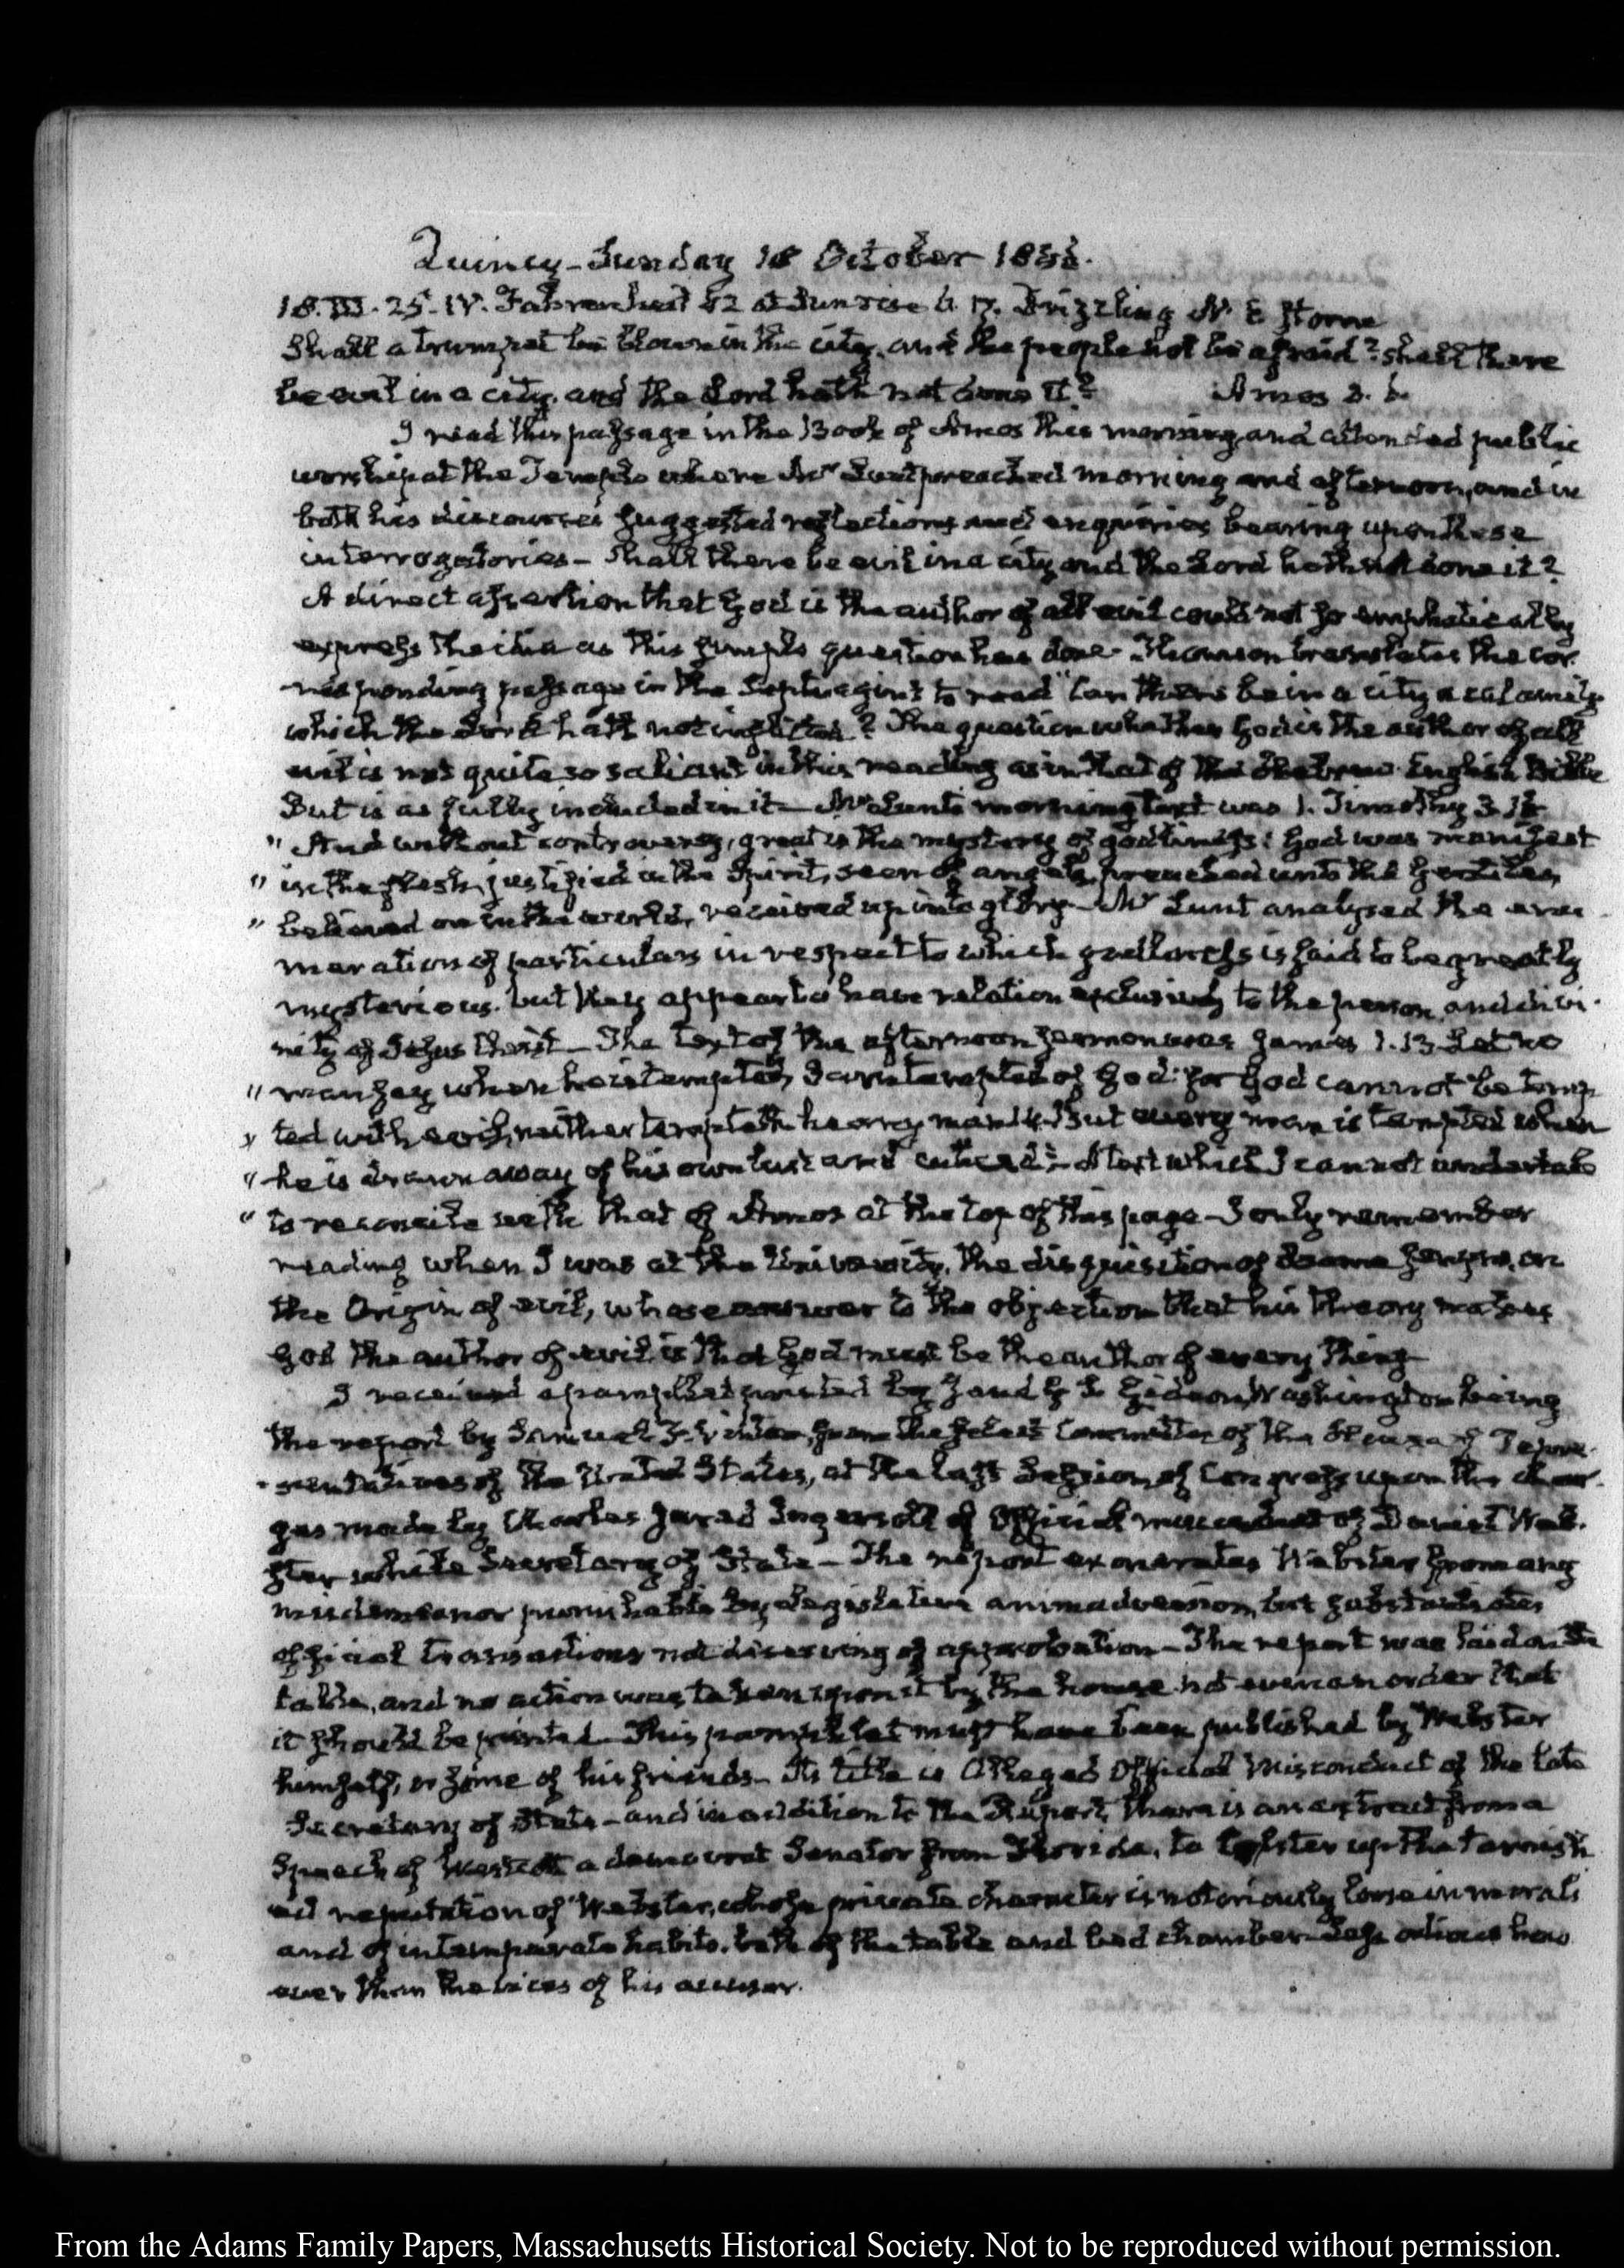 Quincy – Sunday 18 October 1846.
18. III. 25. IV. Fahrenheit 52 at Sunrise 6. 17. Drizzling N. E storm
Shall a trumpet be blown in the city, and the people not be afraid? shall there
be evil in a city, and the Lord hath not done it? Amos 3. 6.
I read this passage in the Book of Amos this morning and attended public
worship at the Temple where Mr Lunt preached morning and afternoon, and in
both his discourses suggested reflections and enquiries bearing upon these
interrogatories – Shall there be evil in a city and the Lord hath not done it?
A direct assertion that God is the author of all evil could not so emphatically
express the idea as this simple question has done. Thomson translates the cor-
-responding passage in the Septuagint to read "Can there be in a city a calamity
which the Lord hath not inflicted? The question whether God is the author of all
evil is not quite so salient in this reading as in that of the Hebrew English Bible
But is as fully included in it – Mr Lunt's morning text was 1. Timothy 3. 16
" And without controversy, great is the mystery of godliness: God was manifest
" in the flesh, justified in the Spirit, seen of angels, preached unto the Gentiles,
" believed on in the world, received up into glory – Mr Lunt analysed the enu-
meration of particulars in respect to which godliness is said to be greatly
mysterious. but they appear to have relation exclusively to the person and divi-
nity of Jesus Christ – The text of the afternoon sermon was James 1. 13 Let no
" man say when he is tempted, I am tempted of God: for God cannot be temp
" ted with evil, neither tempteth he any man 14. But every man is tempted when
" he is drawn away of his own lust and enticed – A text which I cannot undertake
" to reconcile with that of Amos at the top of this page – I only remember
reading when I was at the University, the disquisition of Soame Jenyns, on
the Origin of evil, whose answer to the objection that his theory makes
God the author of evil is that God must be the author of every thing
I received a pamphlet printed by J and G S Gideon, Washington being
the report by Samuel F. Vinton, from the select Committee of the House of Repre-
-sentatives of the United States, at the last Session of Congress upon the char-
ges made by Charles Jared Ingersoll of Official misconduct of Daniel Web-
ster while Secretary of State – The report exonerates Webster from any
misdemeanor punishable by legislative animadversion, but substantiates
official transactions not deserving of approbation – The report was laid on the
table, and no action was taken upon it by the house not even an order that
it should be printed – This pamphlet must have been published by Webster
himself, or some of his friends – Its title is Alleged Official Misconduct of the late
Secretary of State – and in addition to the Report, there is an extract from a
Speech of Westcott a democrat Senator from Florida, to bolster up the tarnish
ed reputation of Webster, whose private character is notoriously loose in morals
and of intemperate habits, both of the table and bed chamber. Less odious how
ever than the vices of his accuser.
From the Adams Family Papers, Massachusetts Historical Society. Not to be reproduced without permission.